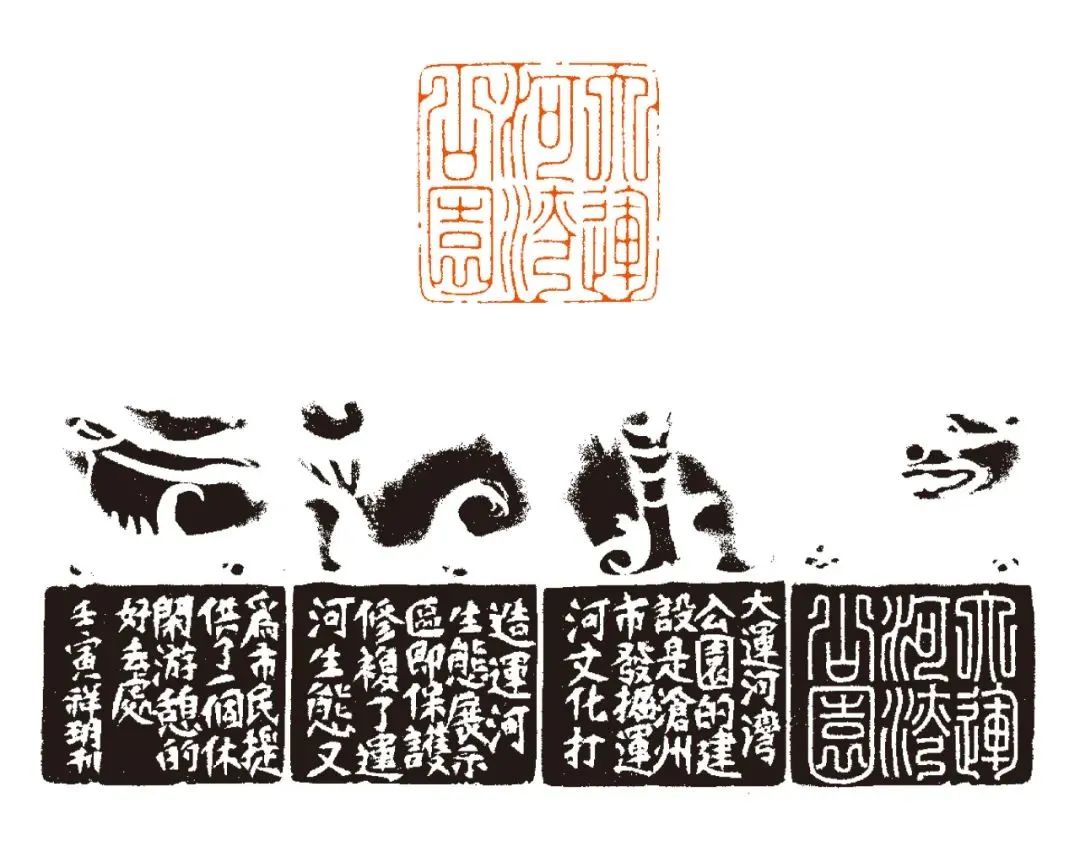 大運
河湾
公園
大運
河湾
公園
大運河灣
公園的建
設是滄州
市發掘運
河文化打
造運河
生態展示
區即保護
修複了運
河生態又
爲市民提
供了一個休
閑游憩的
好去處
壬寅祥玥刊